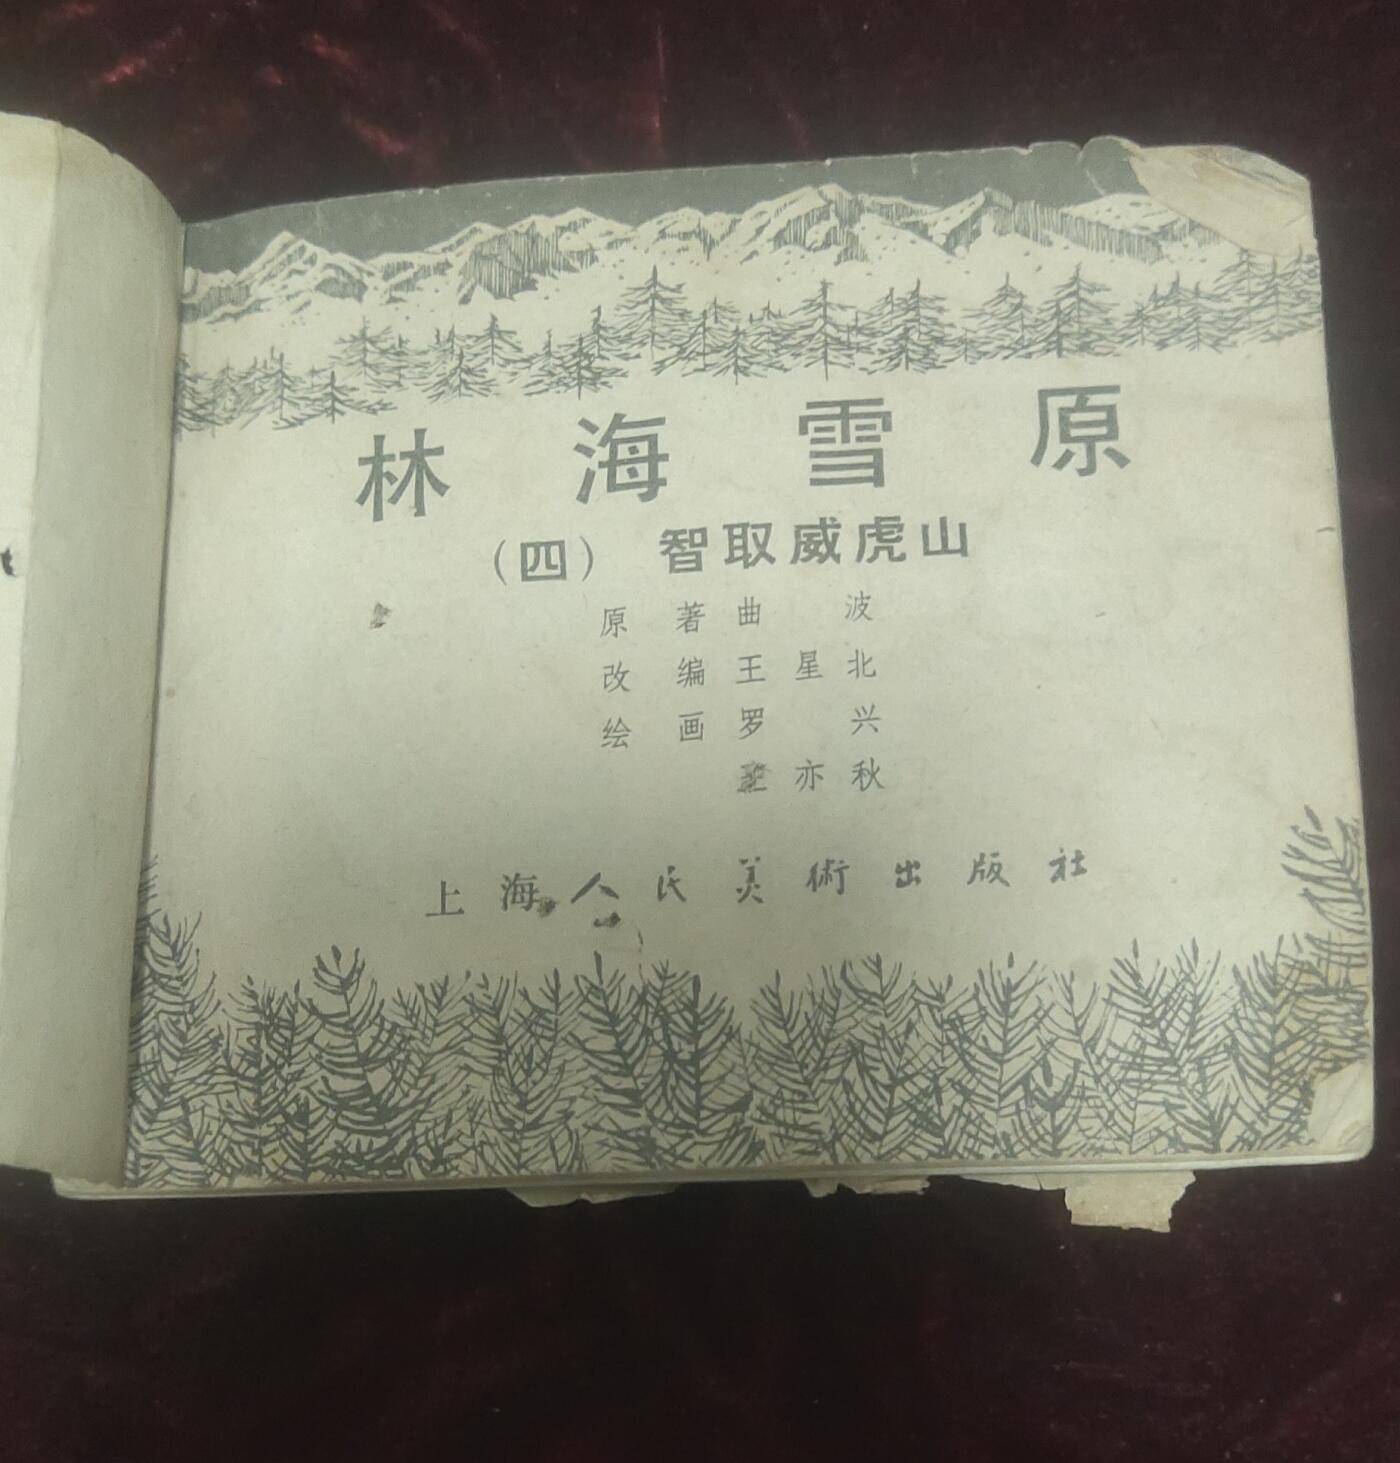 林海雪原
（四） 智取威虎山
原 著 曲 波
改 编 王星北
绘 画 罗 兴
王亦秋
上海人民美術出版社